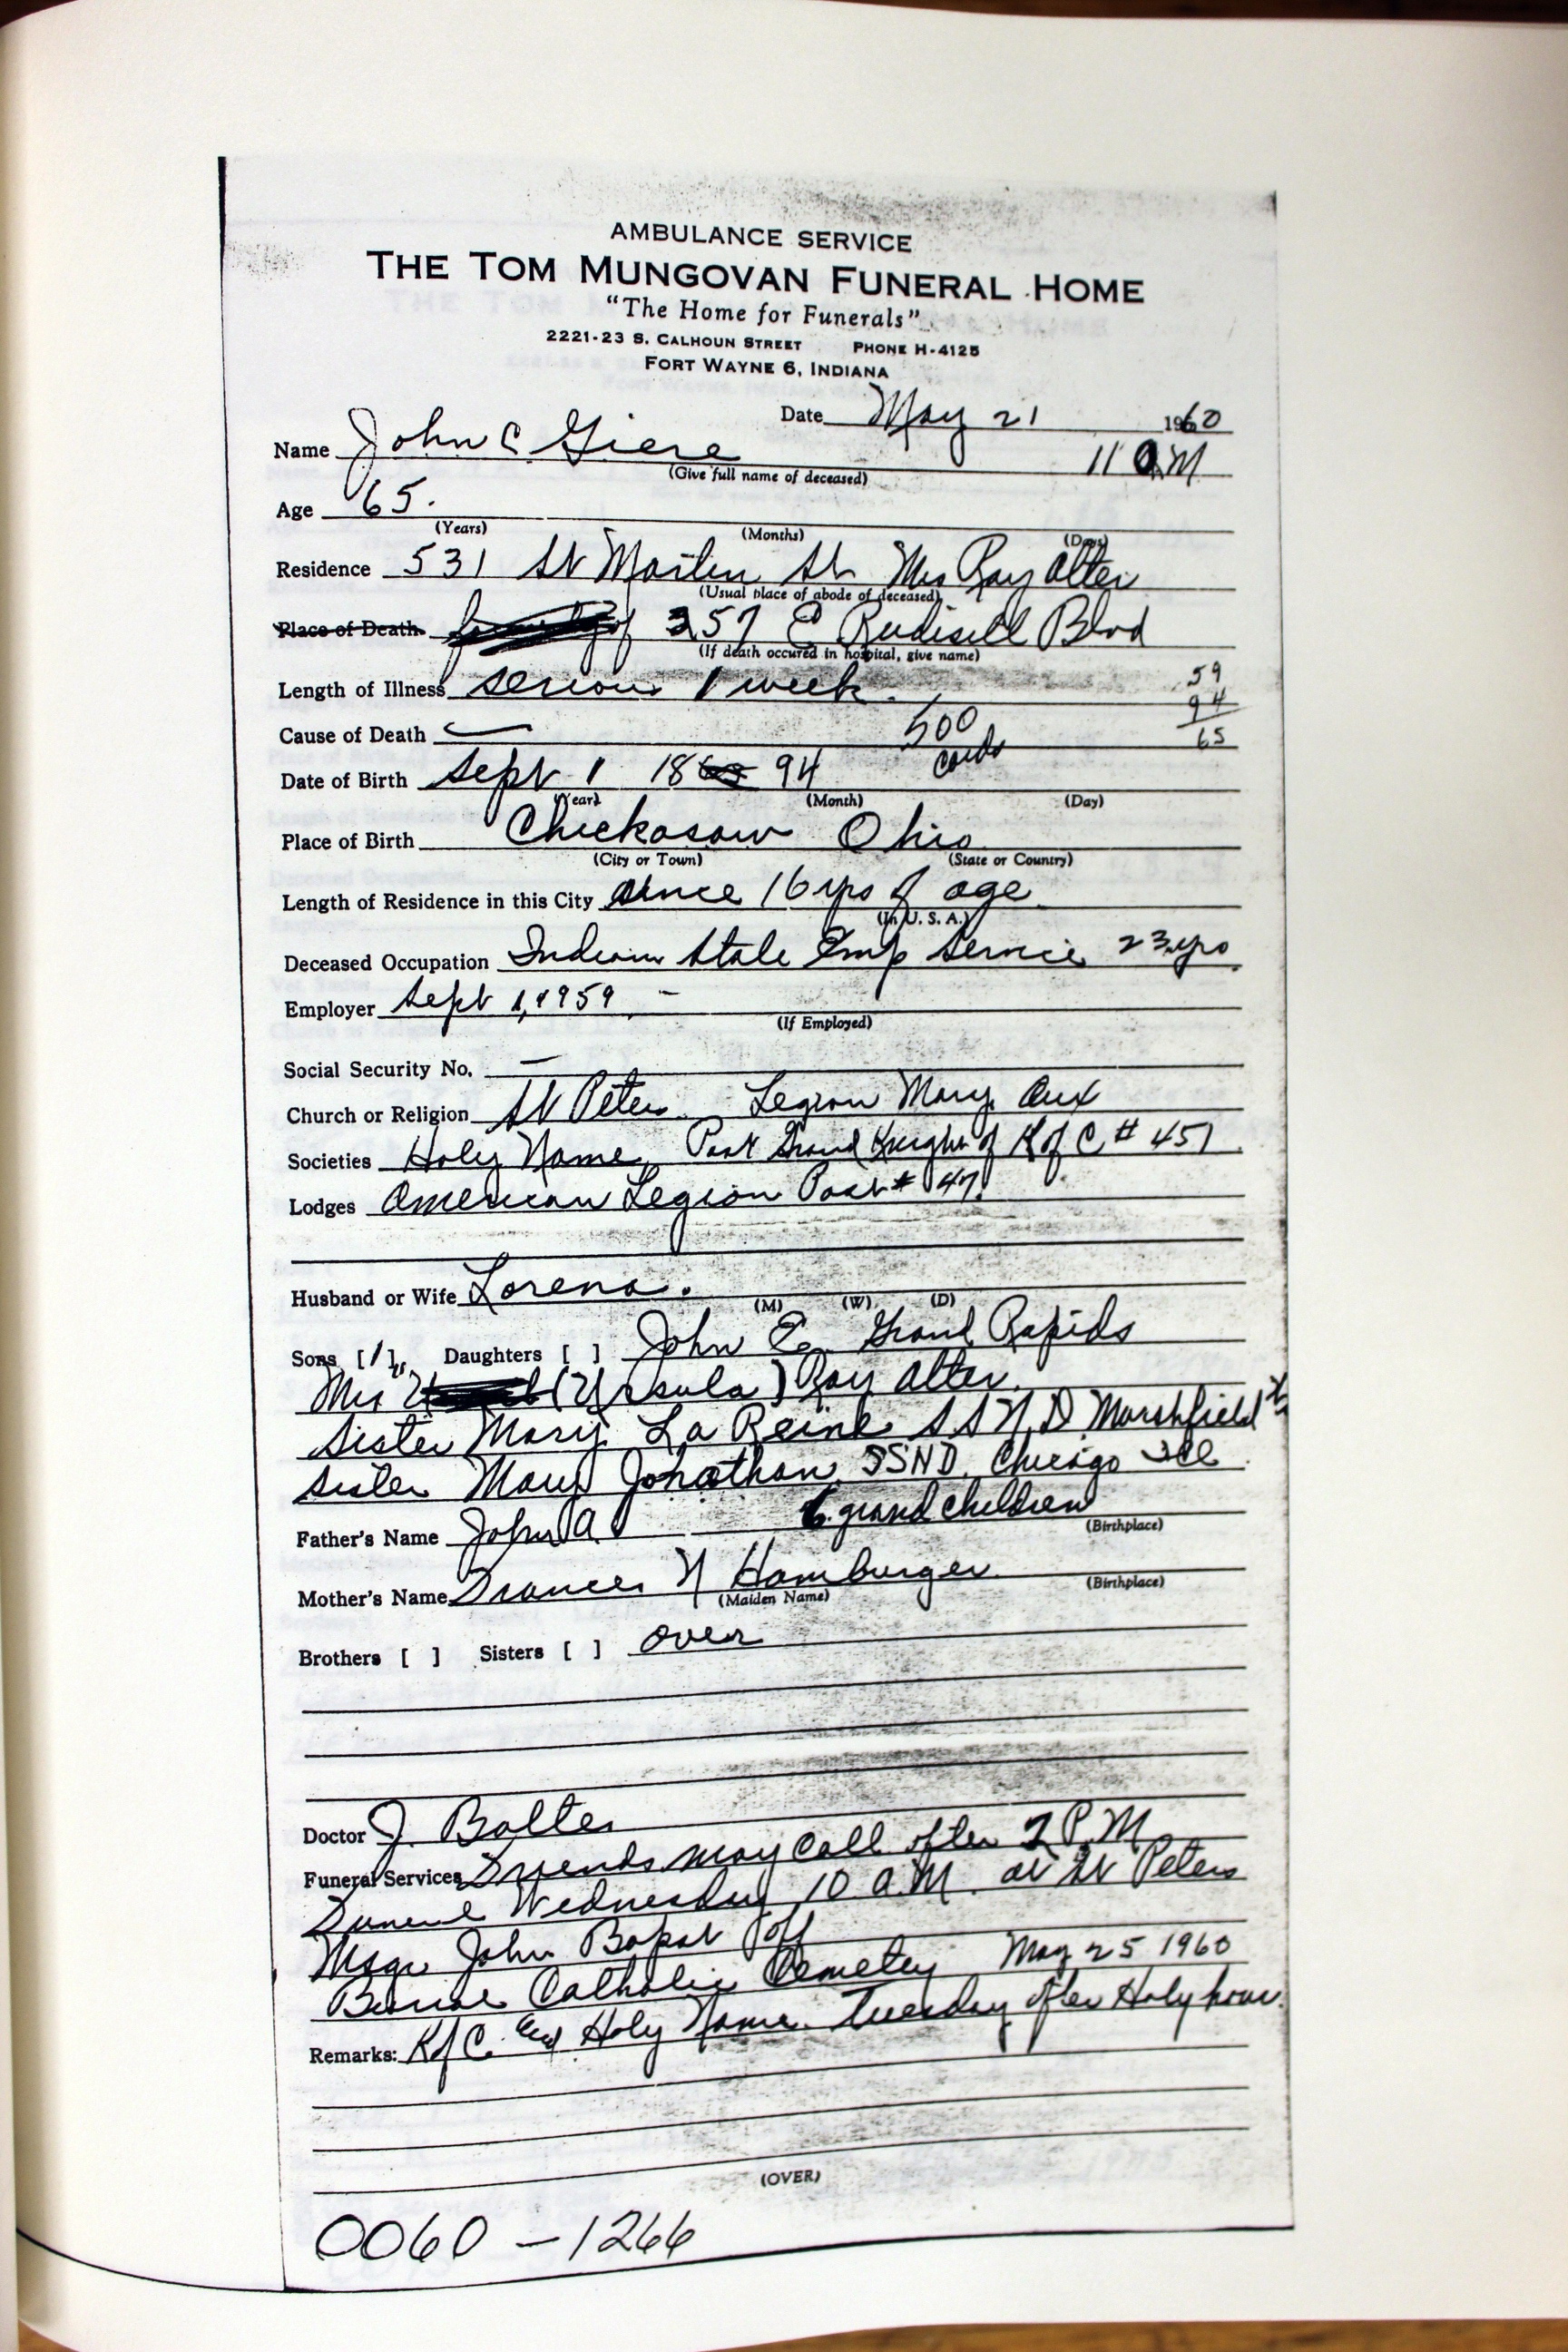 AMBULANCE SERVICE
THE TOM MUNGOVAN FUNERAL HOME
"The Home for Funerals"
2221-23 S. CALHOUN STREET PHONE H-4125
FORT WAYNE 6, INDIANA
Date May 21 1960
Name John C Giere 11 a.M
(Give full name of deceased)
Age 65.
(Years) (Months) (Days)
Residence 531 St Martin St Mrs Ray Alter
(Usual place of abode of deceased)
Place of Death of 357 E Rudisill Blvd
(If death occured in hospital, give name)
Length of Illness serious 1 week. 59
94
Cause of Death — 500 65
cards
Date of Birth Sept 1 18 94
(Year) (Month) (Day)
Place of Birth Chickasaw Ohio
(City or Town) (State or Country)
Length of Residence in this City since 16 yrs of age
(In U. S. A.)
Deceased Occupation Indiana State Emp Service 23 yrs
Employer Sept 1, 1959 -
(If Employed)
Social Security No. —
Church or Religion St Peters. Legion Mary Aux
Societies Holy Name, Past Grand Knight of K of C # 451
Lodges American Legion Post # 47.
Husband or Wife Lorena.
(M) (W) (D)
Sons [1] Daughters [ ] John E. Grand Rapids
Mrs (Ursula) Ray Alter
Sister Mary La Reine S S N D Marshfield
Sister Mary Jonathan, SSND, Chicago Ill
Father's Name John A 6 grand children
(Birthplace)
Mother's Name Frances N Hamburger
(Maiden Name) (Birthplace)
Brothers [ ] Sisters [ ] over
Doctor J. Balter
Funeral Services Friends may call after 2 P.M
Funeral Wednesday 10 a.M. at St Peters
Msgr John Bapst off
Burial Catholic Cemetery May 25 1960
Remarks: K of C. and Holy Name. Tuesday after Holy hour.
(OVER)
0060 - 1266